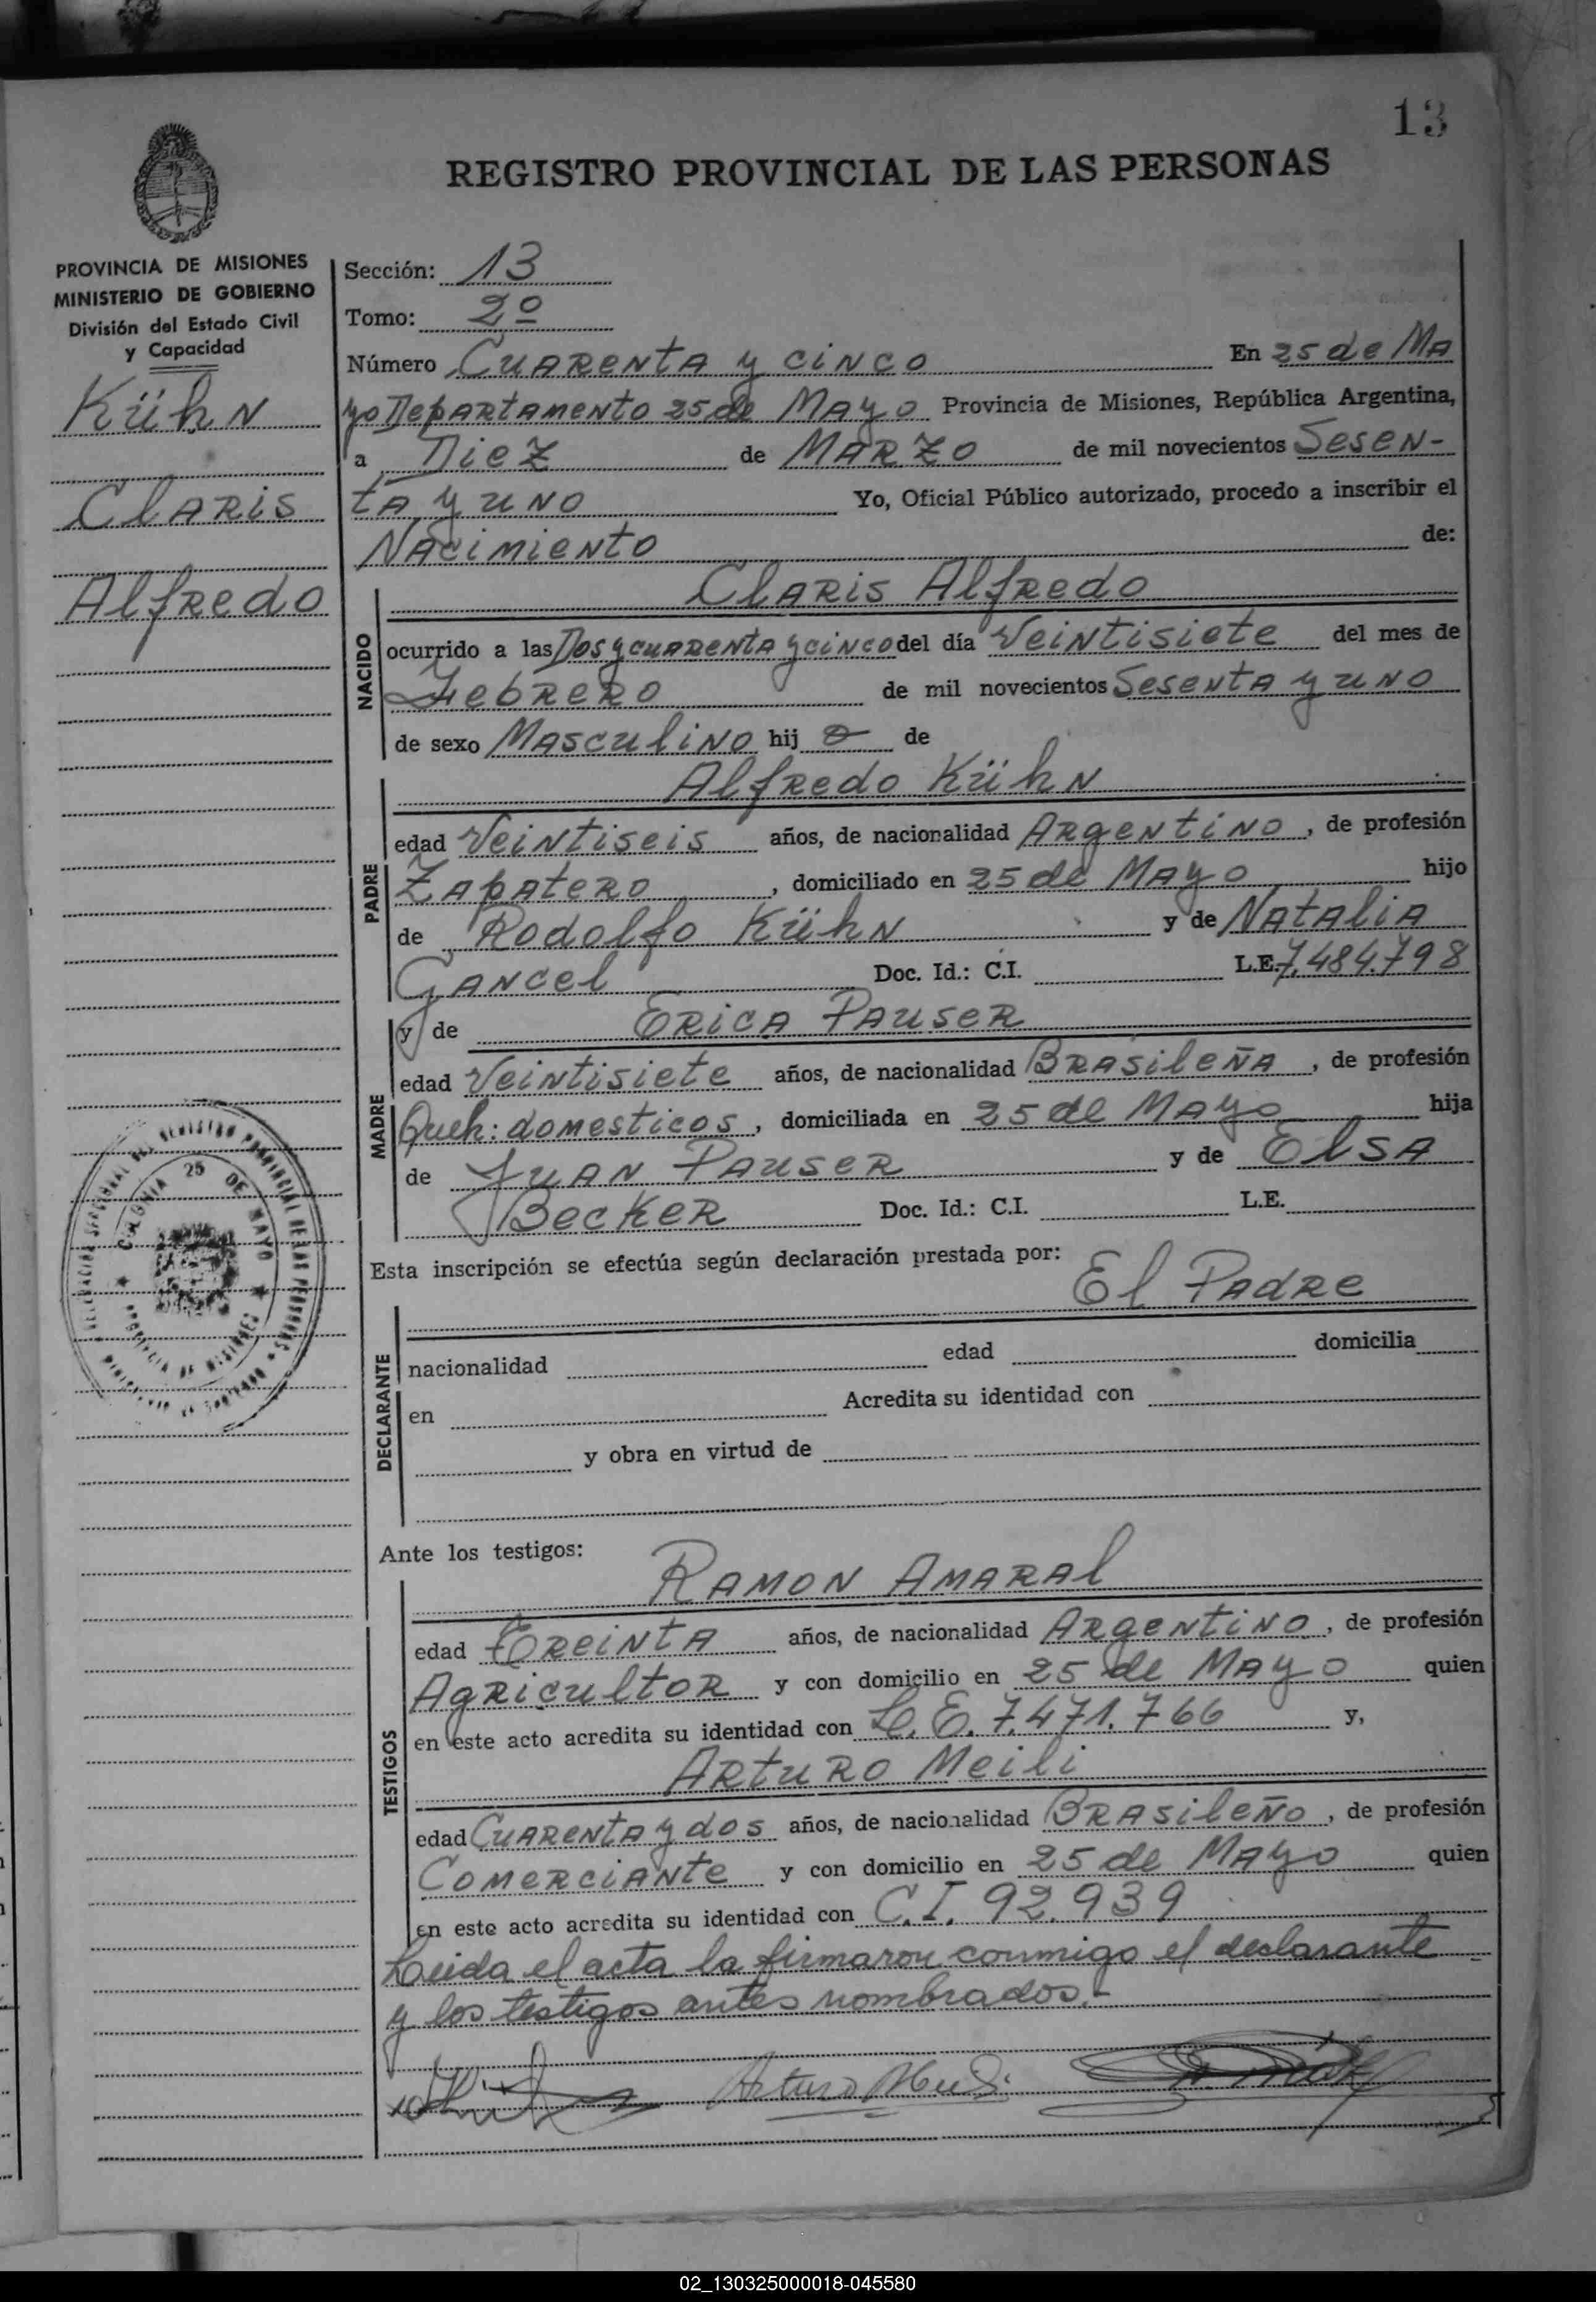 13
REGISTRO PROVINCIAL DE LAS PERSONAS
PROVINCIA DE MISIONES
MINISTERIO DE GOBIERNO
División del Estado Civil
y Capacidad
Kühn
Claris
Alfredo
Sección: 13
Tomo: 2º
Número Cuarenta y cinco En 25 de Ma
yo Departamento 25 de Mayo Provincia de Misiones, República Argentina,
a Diez de Marzo de mil novecientos Sesen-
ta y uno Yo, Oficial Público autorizado, procedo a inscribir el
Nacimiento de:
Claris Alfredo
NACIDO
ocurrido a las Dos y cuarenta y cinco del día Veintisiete del mes de
Febrero de mil novecientos Sesenta y uno
de sexo Masculino hijo de
Alfredo Kühn
PADRE
edad Veintiseis años, de nacionalidad Argentino, de profesión
Zapatero, domiciliado en 25 de Mayo hijo
de Rodolfo Kühn y de Natalia
Gancel Doc. Id.: C.I. L.E. 7.484.798
y de Erica Pauser
MADRE
edad Veintisiete años, de nacionalidad Brasileña, de profesión
Queh: domesticos, domiciliada en 25 de Mayo hija
de Juan Pauser y de Elsa
Becker Doc. Id.: C.I. L.E.
COLONIA 25 DE MAYO
PROVINCIA DE MISIONES
Esta inscripción se efectúa según declaración prestada por:
El Padre
DECLARANTE
nacionalidad edad domicilia
en Acredita su identidad con
y obra en virtud de
Ante los testigos:
Ramon Amaral
TESTIGOS
edad Treinta años, de nacionalidad Argentino, de profesión
Agricultor y con domicilio en 25 de Mayo quien
en este acto acredita su identidad con L.E. 7.471.766 y,
Arturo Meili
edad Cuarenta y dos años, de nacionalidad Brasileño, de profesión
Comerciante y con domicilio en 25 de Mayo quien
en este acto acredita su identidad con C.I. 92.939
Leida el acta la firmaron conmigo el declarante
y los testigos antes nombrados.-
Arturo Meili
02_130325000018-045580